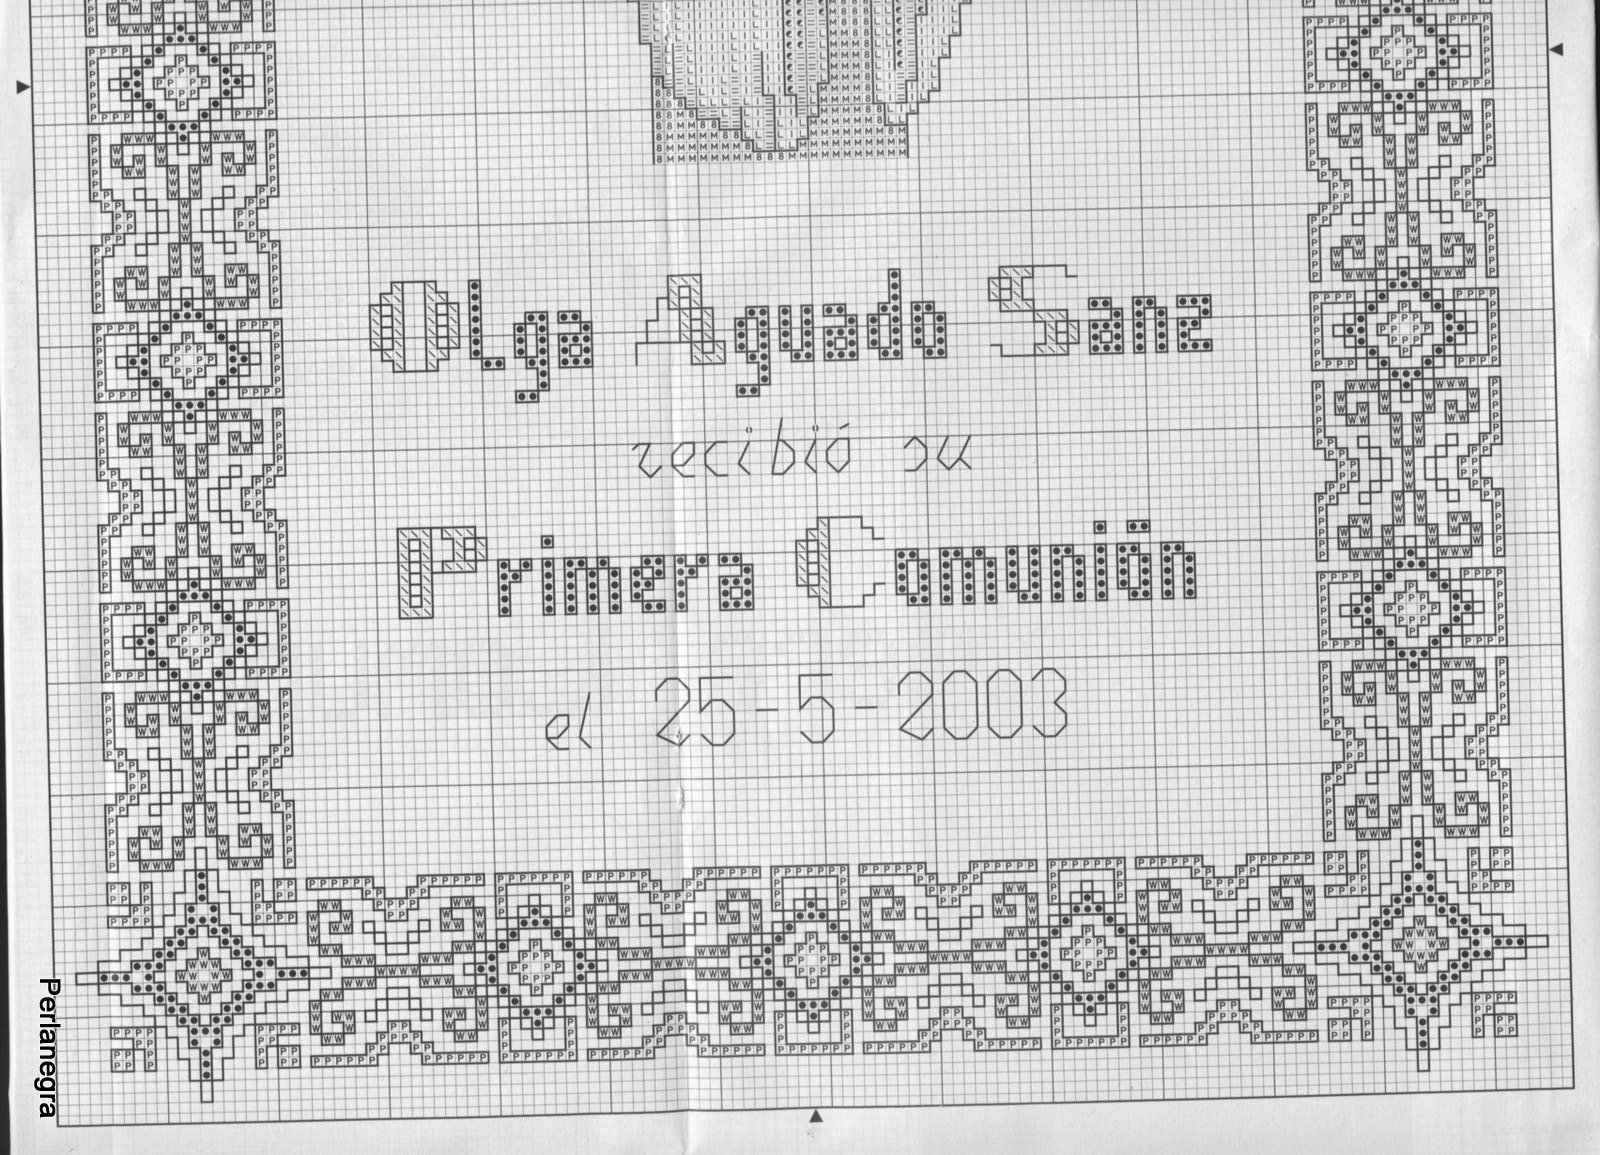 Olga Aguado Sanz
recibió su
Primera Comunión
el 25-5-2003
Perlanegra